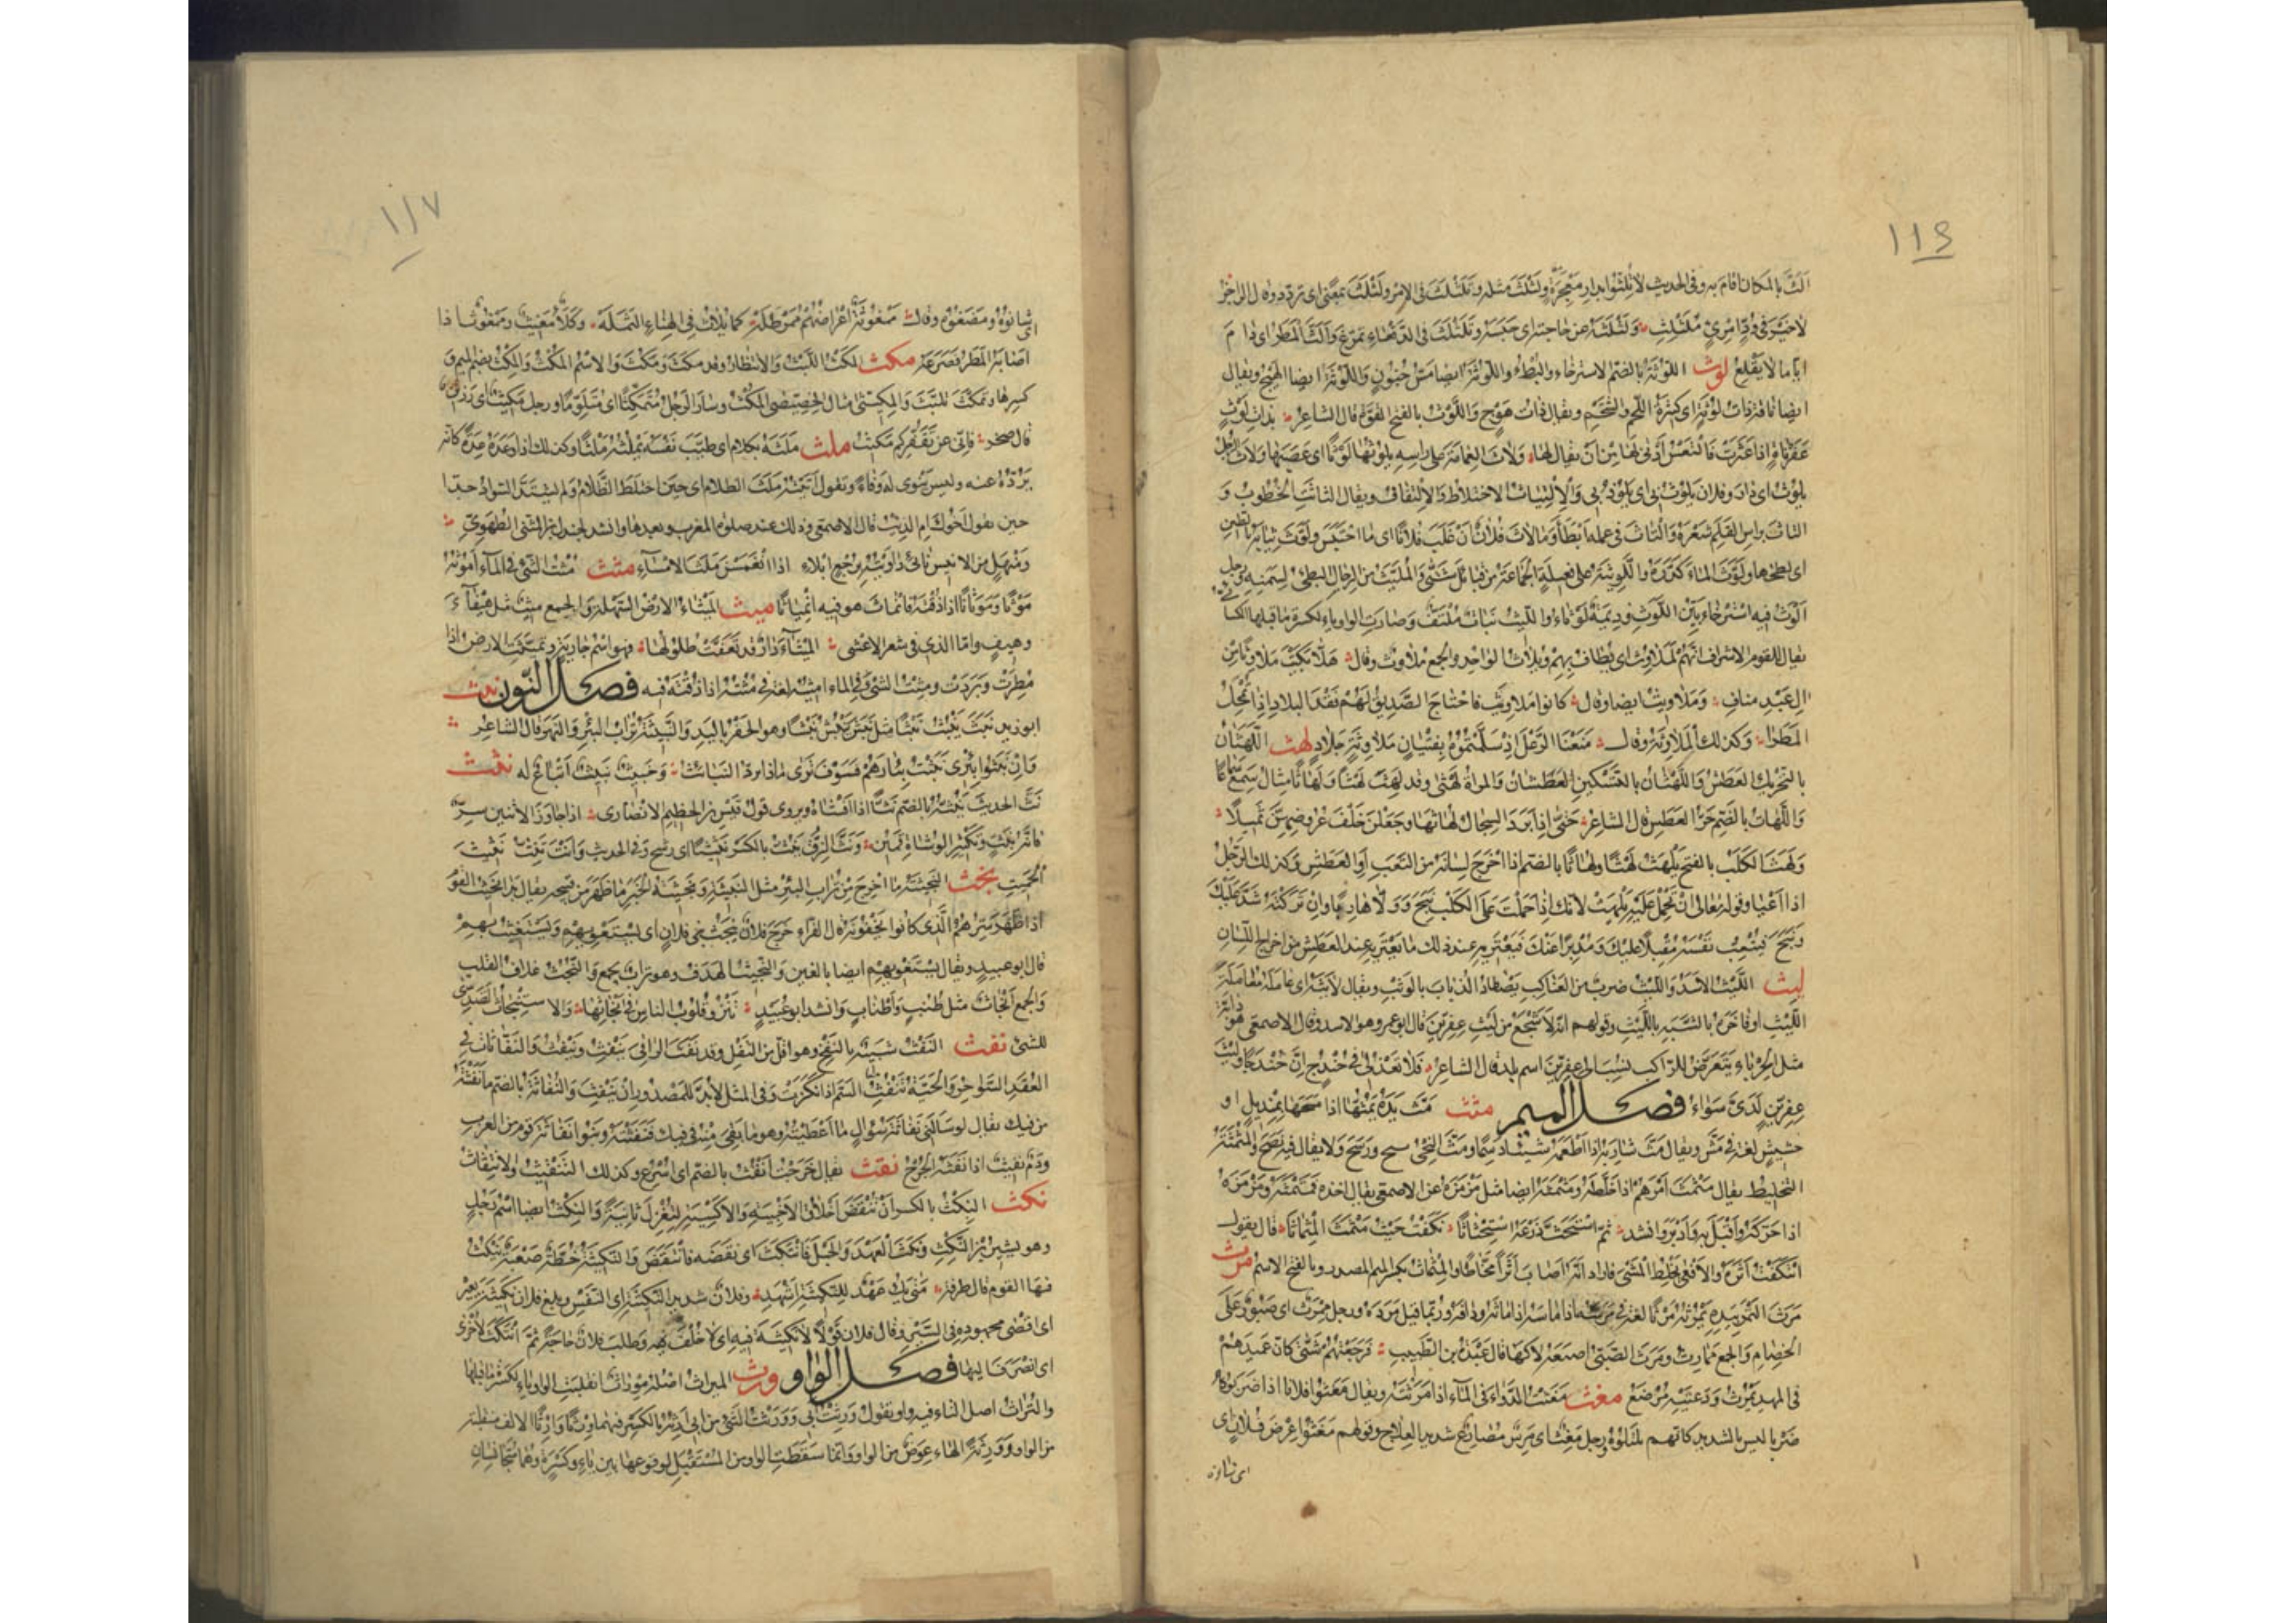 ١١٦
الث بالمكان اقام به وفي الحديث لا تلثوا بدار معجزة ولثلث مثله وتلثلث في الامر ولثلث بمعنى اى تردد وقال الراجز
لا خير في ود امرئ ملثلث ولثلثته عن حاجته اى حبسته وتلثلث في الدقعاء تمرغ والث المطر اى دام
اياما لا يقلع لوث اللوثة بالضم الاسترخاء والبطء واللوثة ايضا مس جنون واللوثة ايضا الهيج ويقال
ايضا ناقة ذات لوثة اى كثيرة اللحم والشحم ويقال ذات هوج واللوث بالفتح القوة قال الشاعر بذات لوث
عفرناة اذا عثرت فالتعس أدنى لها من أن يقال لعا ولاث العمامة على راسه يلوثها لوثا اى عصبها ولاث الرجل
يلوث اى دار وفلان يلوث بى اى يلوذ بى والالتياث الاختلاط والالتفاف ويقال التاثت الخطوب و
التاث براس القلم شعرة والتاث في عمله أبطأ وما لاث فلان أن غلب فلانا اى ما احتبس ولوث ثيابه بالطين
اى لطخها ولوث الماء كدره واللويثة على فعيلة الجماعة من قبائل شتى والمليث من الرجال البطئ لسمنه ورجل
الوث فيه استرخاء بين اللوث وديمة لوثاء واللايث نبات ملتف وصارت الواو ياء لكسرة ما قبلها
يقال للقوم الاشراف انهم لملاوث اى يطاف بهم ويلاث الواحد والجمع ملاوث وقال هلا بكيت ملاوثا من
ال عبد مناف وملاويث ايضا وقال كانوا ملاويث فاحتاج الصديق لهم فقد البلاد اذا ما تمحل
المطرا وكذلك الملاوثة وقال منعنا الرعل اذ سلمتموه بفتيان ملاوثة جلاد لهث اللهثان
بالتحريك العطش واللهثان بالتسكين العطشان والمراة لهثى وقد لهث لهثا ولهاثا مثال سمع سماعا
واللهاث بالضم حر العطش قال الشاعر حتى اذا برد السجال لهاثها وجعلن خلف غروضهن ثميلا
ولهث الكلب بالفتح يلهث لهثا ولهاثا بالضم اذا اخرج لسانه من التعب او العطش وكذلك الرجل
اذا أعيا وقوله تعالى ان تحمل عليه يلهث لانك اذا حملت على الكلب نبح وولى هاربا وان تركته شد عليك
ونبح فيتعب نفسه مقبلا عليك ومدبرا عنك فيعتريه عند ذلك ما يعتريه عند العطش من اخراج اللسان
ليث الليث الاسد والليث ضرب من العناكب يصطاد الذباب بالوثب ويقال لايثه اى عامله معاملة
الليث او فاخره بالشبه بالليث وقولهم انه لأشجع من ليث عفرين قال ابو عمرو هو الاسد وقال الاصمعى هو دابة
مثل الحرباء يتعرض للراكب نسب الى عفرين اسم بلد قال الشاعر فلا تعذلى في حندج ان حندجا وليث
عفرين لدى سواء فصل الميم مثث مث يده يمثها اذا مسحها بمنديل او
حشيش لغة في مش ويقال مث شاربه اذا اطعمه شيئا دسما ومث النحى نتح ورشح ولا يقال فيه نضح والمثمثة
التخليط يقال مثمث أمرهم اذا خلطه ومثمثه ايضا مثل مزمزه عن الاصمعى يقال اخذه فمثمثه ومزمزه
اذا حركه واقبل به وادبر وانشد ثم استحث ذرعه استحثاثا نكفت حيث مثمث المثماثا قال يقول
انتكفت اثره والافعى تخلط المشى فاراد انه اصاب اثرا مخلطا والمثماث بكسر الميم المصدر وبالفتح الاسم مرث
مرث التمر بيده يمرثه مرثا لغة في مرسه اذا ماثه ودافه وربما قيل مرده ورجل ممرث اى صبور على
الخصام والجمع ممارث ومرث الصبى اصبعه لاكها قال عبدة بن الطبيب فرجعتهم شتى كان عميدهم
في المهد يمرث ودعتيه مرضع مغث مغثت الدواء في الماء اذا مرثته ويقال مغثوا فلانا اذا ضربوه
ضربا ليس بالشديد كانهم تلتلوه ورجل مغث اى مرس مصارع شديد العلاج وقولهم مغثوا عرض فلان اى
اى شانوه
١١٧
شانوه ومضغوه وقال ممغوثة أعراضهم ممرطلة كما تلاث في الهناء الثملة وكلأ مغيث وممغوث اذا
اصابه المطر فصرعه مكث المكث اللبث والانتظار وقد مكث ومكث والاسم المكث والمكث بضم الميم و
كسرها وتمكث تلبث والمكيثى مثال الخصيصى المكث وسار الرجل متمكثا اى متلوما ورجل مكيث اى رزين
قال صخر فانى عن تقفركم مكيث ملث ملثه بكلام اى طيب نفسه يملثه ملثا وكذلك اذا وعده عدة كانه
يرده عنه وليس ينوى له وفاء وتقول اتيته ملث الظلام اى حين اختلط الظلام ولم يشتد السواد جدا
حين تقول اخوك ام الذيب قال الاصمعى وذلك عند صلوة المغرب وبعدها وانشد لجندل بن المثنى الطهوى
ومنهل من الانيس نائى داويته برجع ابلاء اذا انغمسن ملث الامساء موث مثت الشئ في الماء اموثه
موثا وموثانا اذا دفته فانماث هو فيه انمياثا ميث الميثاء الارض السهلة والجمع ميث مثل هيفاء
وهيف واما الذى في شعر الاعشى الميثاء دار قد تعفت طلولها فهو اسم جارية وتميثت الارض اذا
مطرت وبردت ومثت الشئ في الماء اميثه لغة في مثته اذا دفته فيه فصل النون نبث
ابو زيد نبث ينبث نبثا مثل نبش ينبش نبشا وهو الحفر باليد والنبيثة تراب البئر والنهر قال الشاعر
وان نبثوا بئرى نبثت بئارهم فسوف ترى ماذا ترد النبائث وخبيث نبيث اتباع له نثث
نث الحديث ينثه بالضم نثا اذا افشاه ويروى قول قيس بن الخطيم الانصارى اذا جاوز الاثنين سر
فانه بنث وتكثير الوشاة قمين ونث الزق ينث بالكسر نثيثا اى رشح وفي الحديث وانت تنث نثيث
الحميت نجث النجيثة ما اخرج من تراب البئر مثل النبيثة ونجيثة الخبر ما ظهر من قبيحه يقال بدا نجيث القوم
اذا ظهر سرهم الذى كانوا يخفونه قال الفراء خرج فلان ينجث بنى فلان اى يستعويهم ويستغيث بهم
قال ابو عبيد ويقال يستغويهم ايضا بالغين والنجيث الهدف وهو تراب يجمع والنجث غلاف القلب
والجمع انجاث مثل طنب واطناب وانشد ابو عبيد تنزو قلوب الناس في انجاثها والاستنجاث التصدى
للشئ نفث النفث شبيه بالنفخ وهو اقل من التفل وقد نفث الراقى ينفث وينفث والنفاثات في
العقد السواحر والحية تنفث السم اذا نكزت وفي المثل لا بد للمصدور ان ينفث والنفاثة بالضم ما نفثته
من فيك يقال لو سألنى نفاثة سواك ما أعطيته وهو ما بقى منه في فيك فنفثته وبنو نفاثة قوم من العرب
ودم نفيث اذا نفثه الجرح نقث يقال خرجت أنقث بالضم اى اسرع وكذلك التنقيث والانتقاث
نكث النكث بالكسر أن تنقض اخلاق الاخبية والاكسية لتغزل ثانية والنكث ايضا اسم رجل
وهو بشير بن النكث ونكث العهد والحبل فانتكث اى نقضه فانتقض والنكيثة خطة صعبة ينكث
فيها القوم قال طرفة متى يك عهد للنكيثة أشهد وفلان شديد النكيثة اى النفس وبلغ فلان نكيثة بعيره
اى اقصى مجهوده في السير وقال فلان قولا لا نكيثة فيه اى لا خلف فيه وطلب فلان حاجة ثم انتكث لاخرى
اى انصرف اليها فصل الواو ورث الميراث اصله موراث انقلبت الواو ياء لكسرة ما قبلها
والتراث اصل التاء فيه واو وتقول ورثت ابى وورثت الشئ من ابى ارثه بالكسر فيهما ورثا وارثا الالف منقلبة
من الواو ورثة الهاء عوض من الواو وانما سقطت الواو من المستقبل لوقوعها بين ياء وكسرة وهما متجانسان